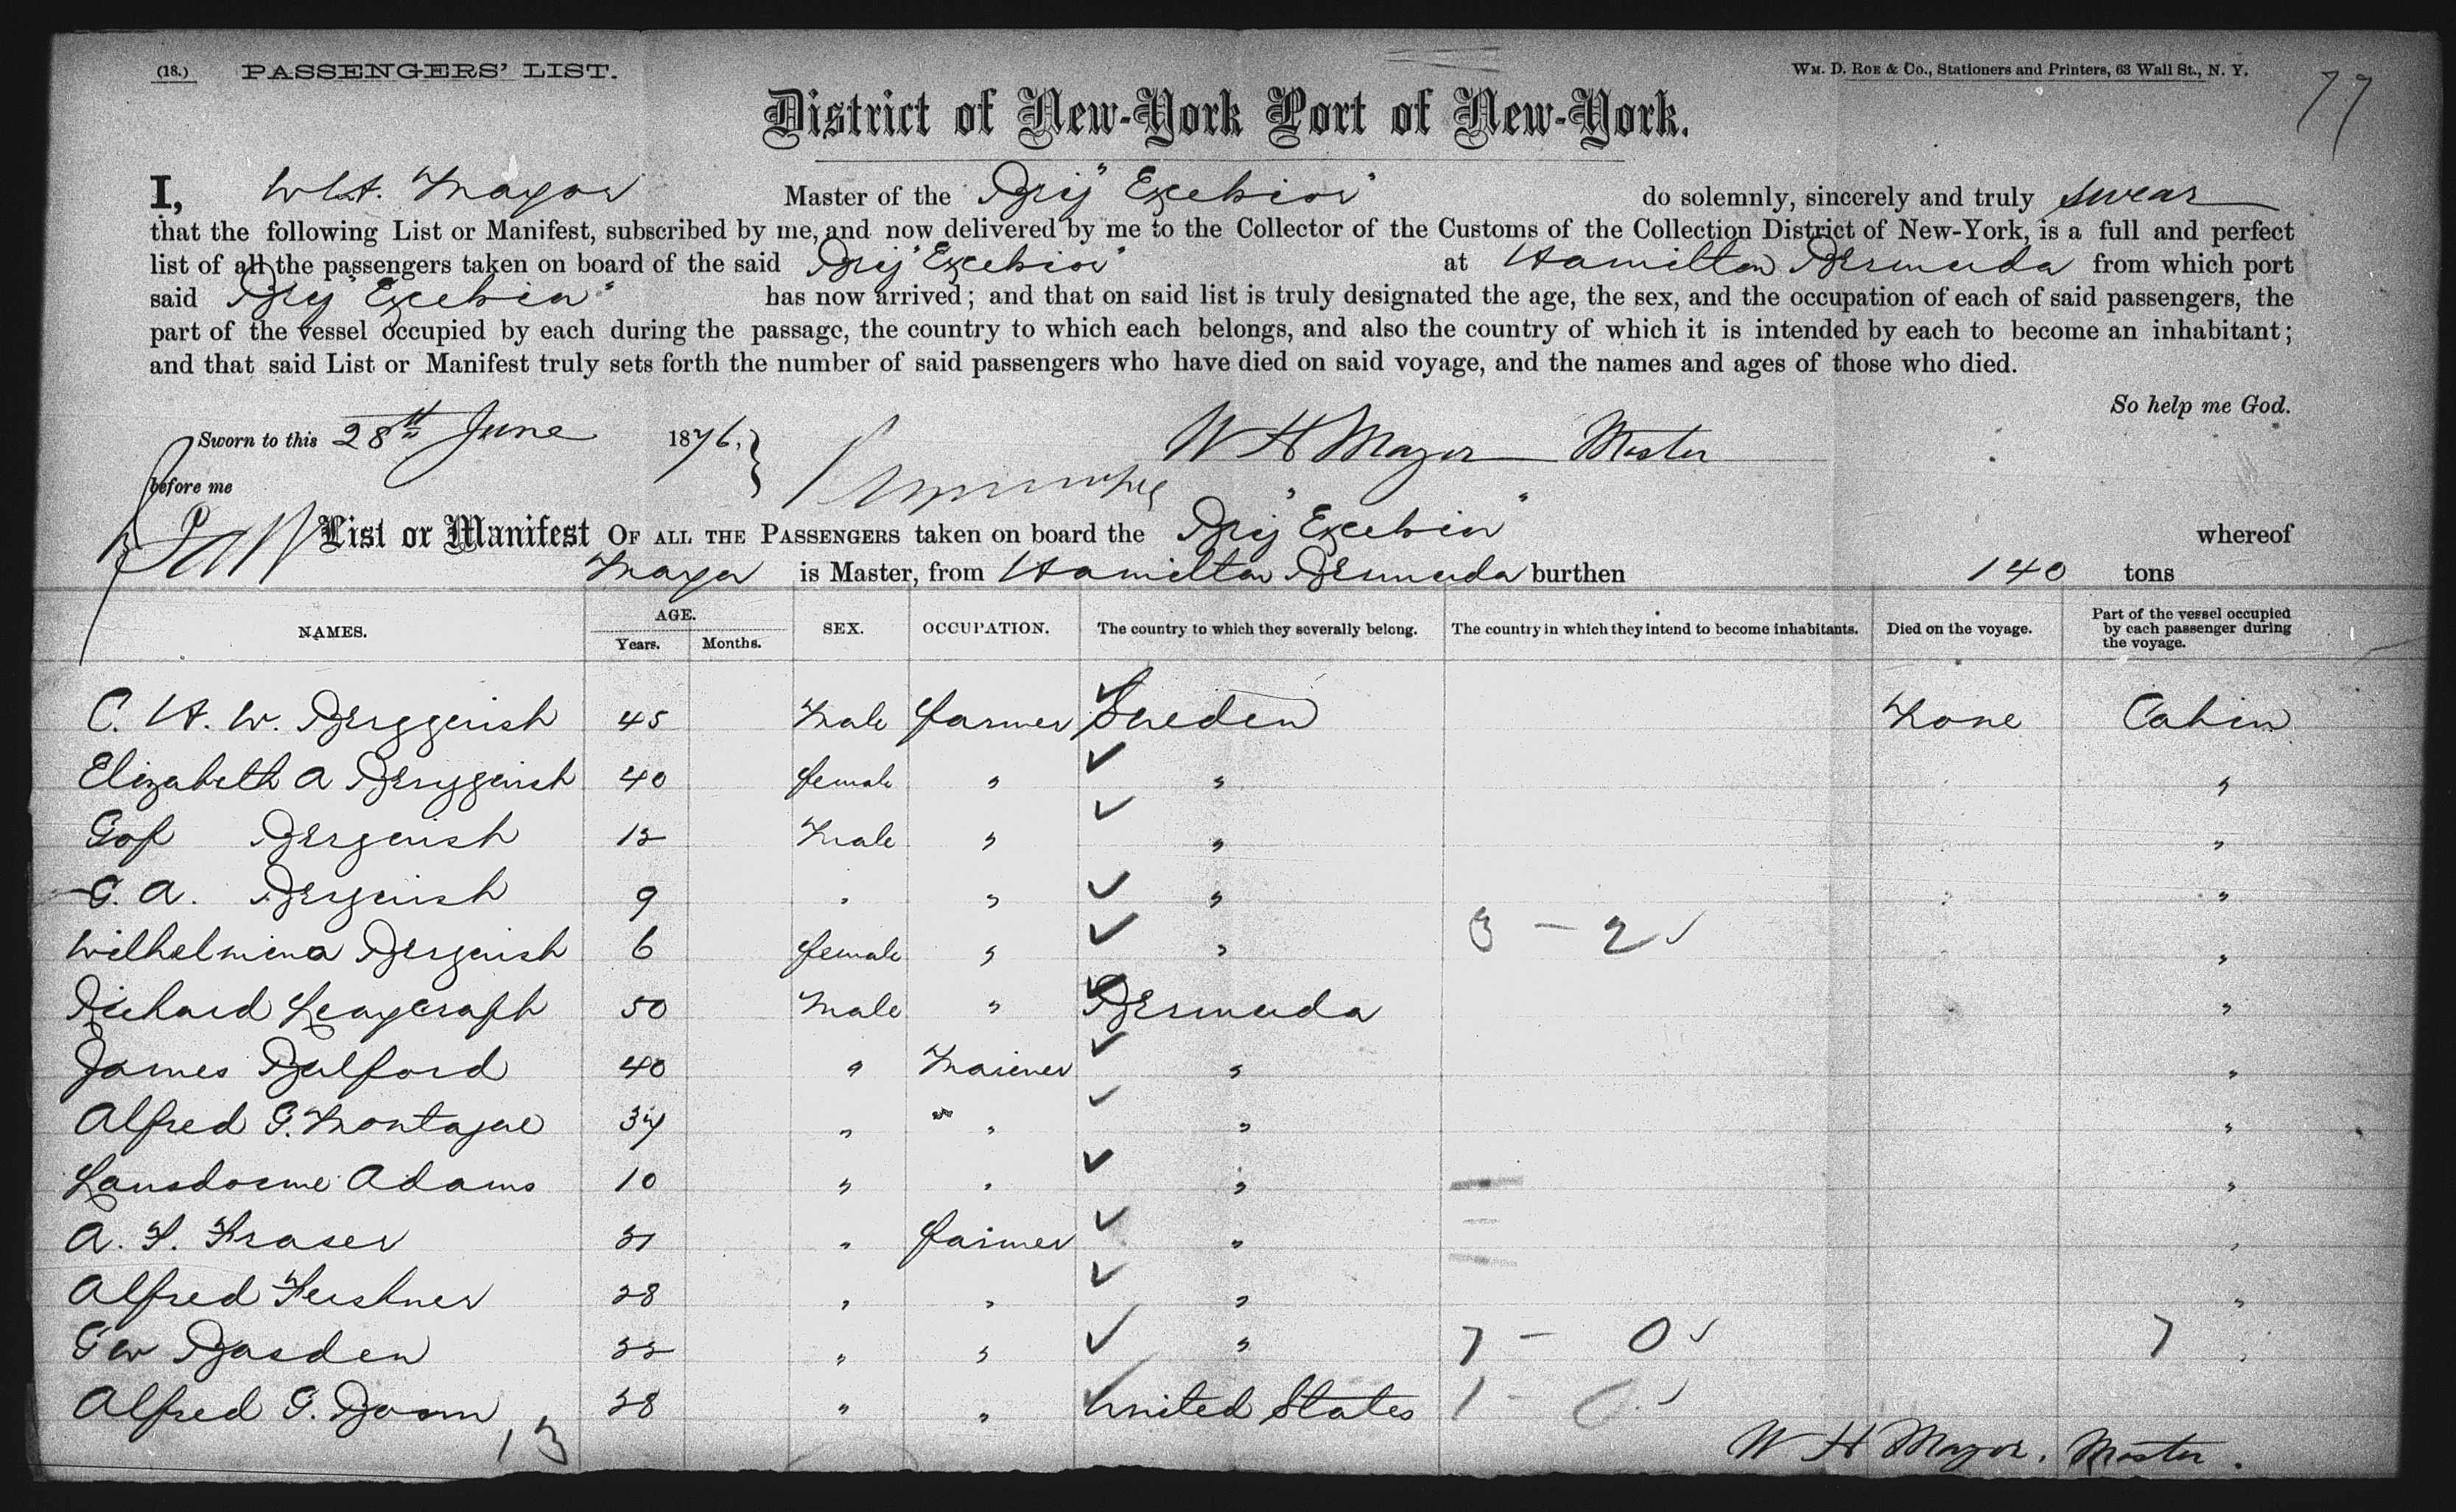 (18.) PASSENGERS' LIST.
WM. D. ROE & Co., Stationers and Printers, 63 Wall St., N. Y.
77
District of New-York Port of New-York.
I, W. H. Mayor Master of the Brig "Excelsior" do solemnly, sincerely and truly swear
that the following List or Manifest, subscribed by me, and now delivered by me to the Collector of the Customs of the Collection District of New-York, is a full and perfect
list of all the passengers taken on board of the said Brig "Excelsior" at Hamilton Bermuda from which port
said Brig "Excelsior" has now arrived; and that on said list is truly designated the age, the sex, and the occupation of each of said passengers, the
part of the vessel occupied by each during the passage, the country to which each belongs, and also the country of which it is intended by each to become an inhabitant;
and that said List or Manifest truly sets forth the number of said passengers who have died on said voyage, and the names and ages of those who died.
So help me God.
Sworn to this 28th June 1876.
W H Mayor Master
before me
List or Manifest OF ALL THE PASSENGERS taken on board the Brig "Excelsior" whereof
Mayor is Master, from Hamilton Bermuda burthen 140 tons
NAMES. AGE. Years. Months. SEX. OCCUPATION. The country to which they severally belong. The country in which they intend to become inhabitants. Died on the voyage. Part of the vessel occupied by each passenger during the voyage.
C. H. W. Berggerish 45 Male farmer Sweden None Cabin
Elizabeth A Berggerish 40 female " " "
Bergerish 12 Male " " "
G. A. Bergerish 9 " " " "
Wilhelmina Bergerish 6 female " " 3 - 2 "
Richard Leaycraft 50 Male " Bermuda "
James Bulford 40 " Mariner " "
Alfred G. Montague 37 " " " "
Lansdowne Adams 10 " " " "
A. F. Fraser 31 " farmer " "
Alfred 28 " " " "
Geo Basden 32 " " " 7 - 0 7 "
Alfred G. 38 " " United States 1 - 0
13
W H Mayor. Master.